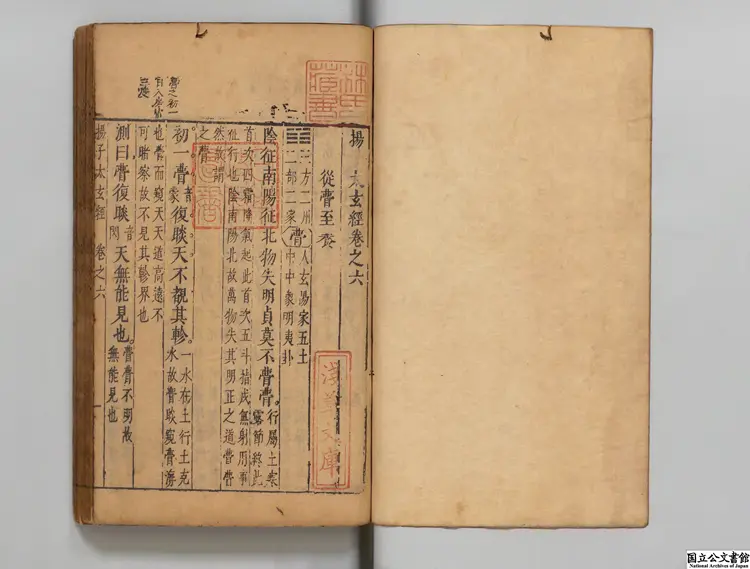 揚 太玄經卷之六
從瞢至養
三方二州
二部二家
瞢
人玄陽家五土
中中象明夷卦
陰征南陽征北物失明貞莫不瞢瞢。
行屬土
征行也陰南陽北故萬物失其明正之道瞢瞢
然故謂
之瞢
初一瞢復睒天不覩其軫。
一水在土行土克
水故瞢睒窺瞢
也瞢而窺天天道高遠不
可睹察故不見其軫界也
測曰瞢復睒天無能見也。
瞢瞢不明故
無能見也
揚子太玄經 卷之六 一
林氏
藏書
淺草文庫
国立公文書館
National Archives of Japan